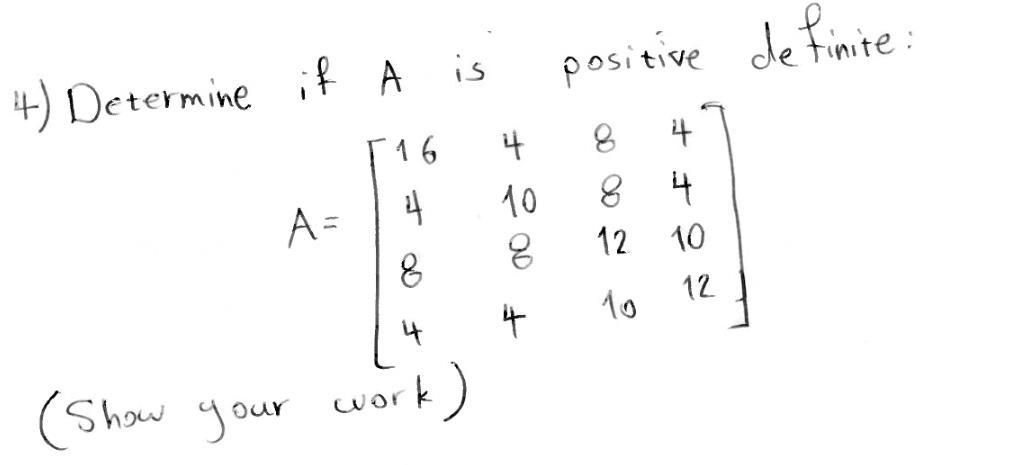 4) Determine if A is positive definite:
A= [16 4 8 4
4 10 8 4
8 8 12 10
4 4 10 12]
(Show your work)